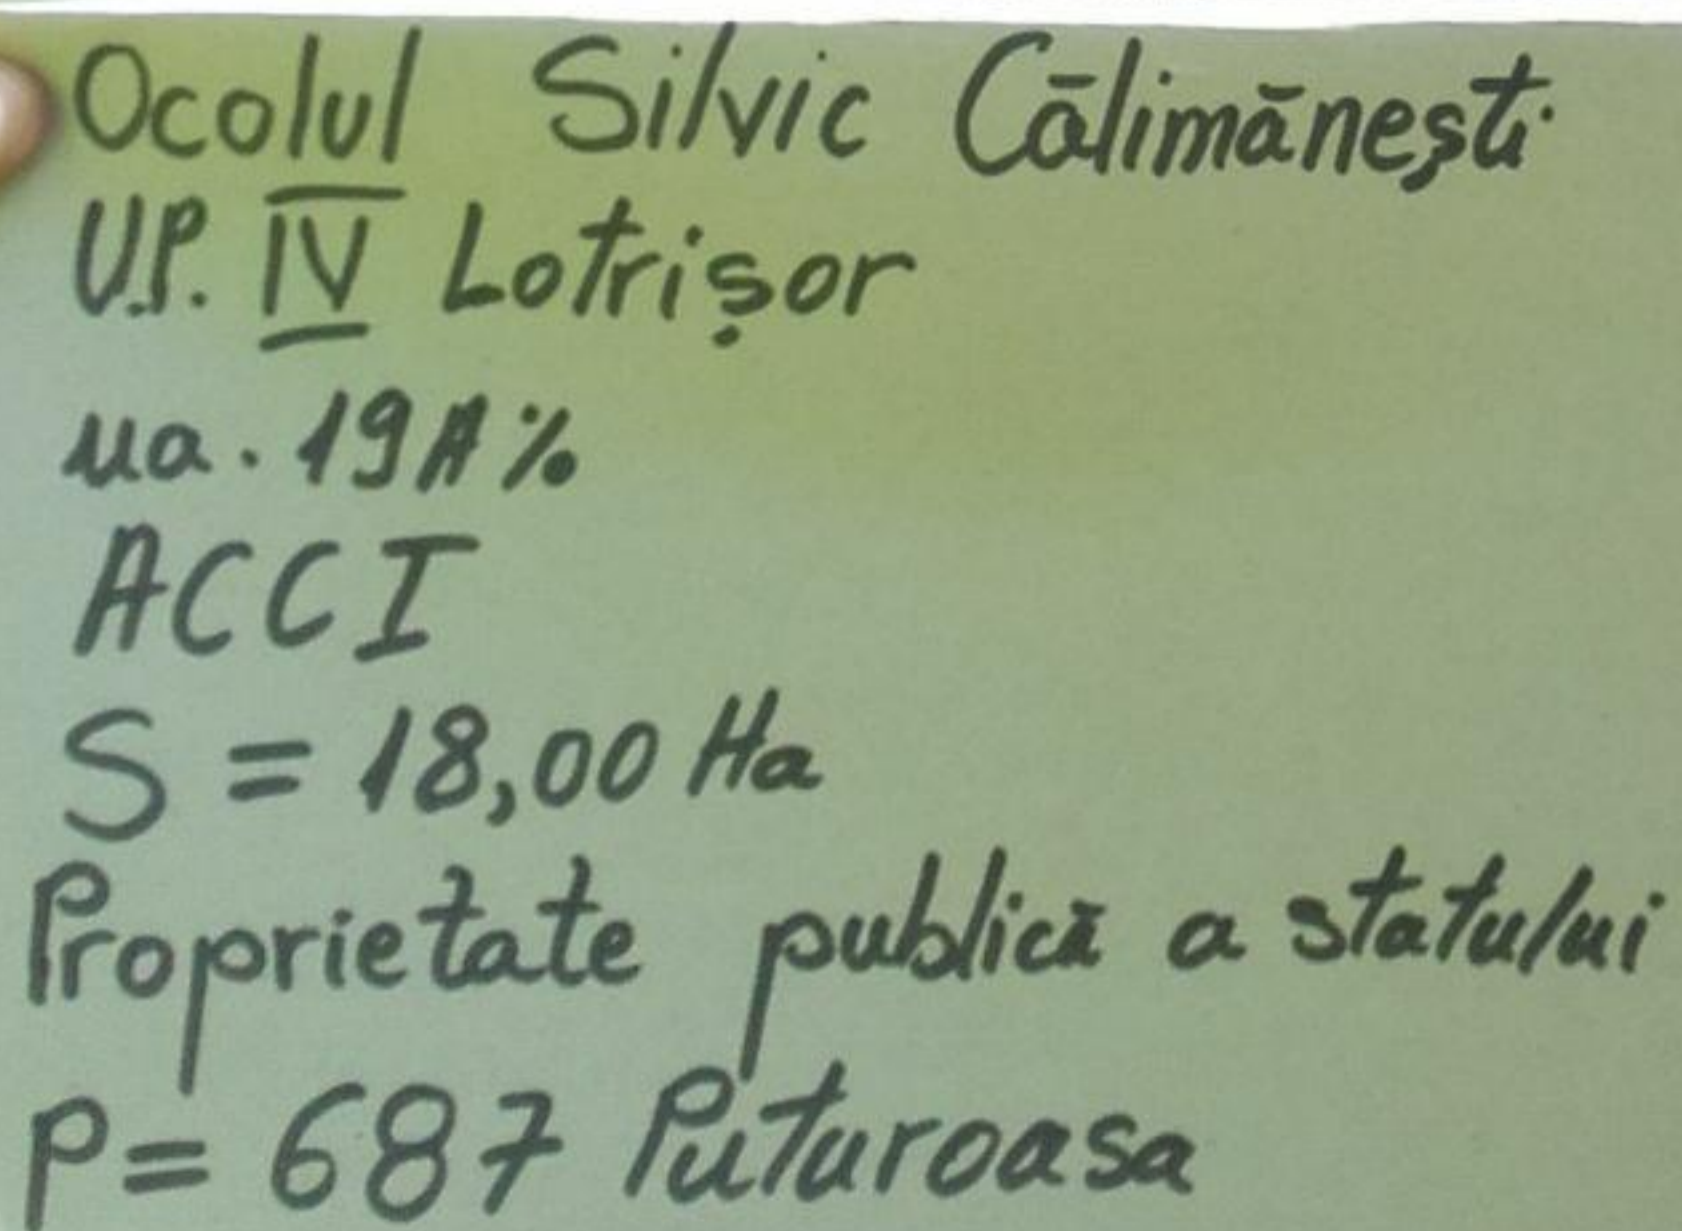 Ocolul Silvic Călimănești
U.P. IV Lotrișor
ua. 19A%
ACCI
S = 18,00 Ha
Proprietate publică a statului
P= 687 Puturoasa